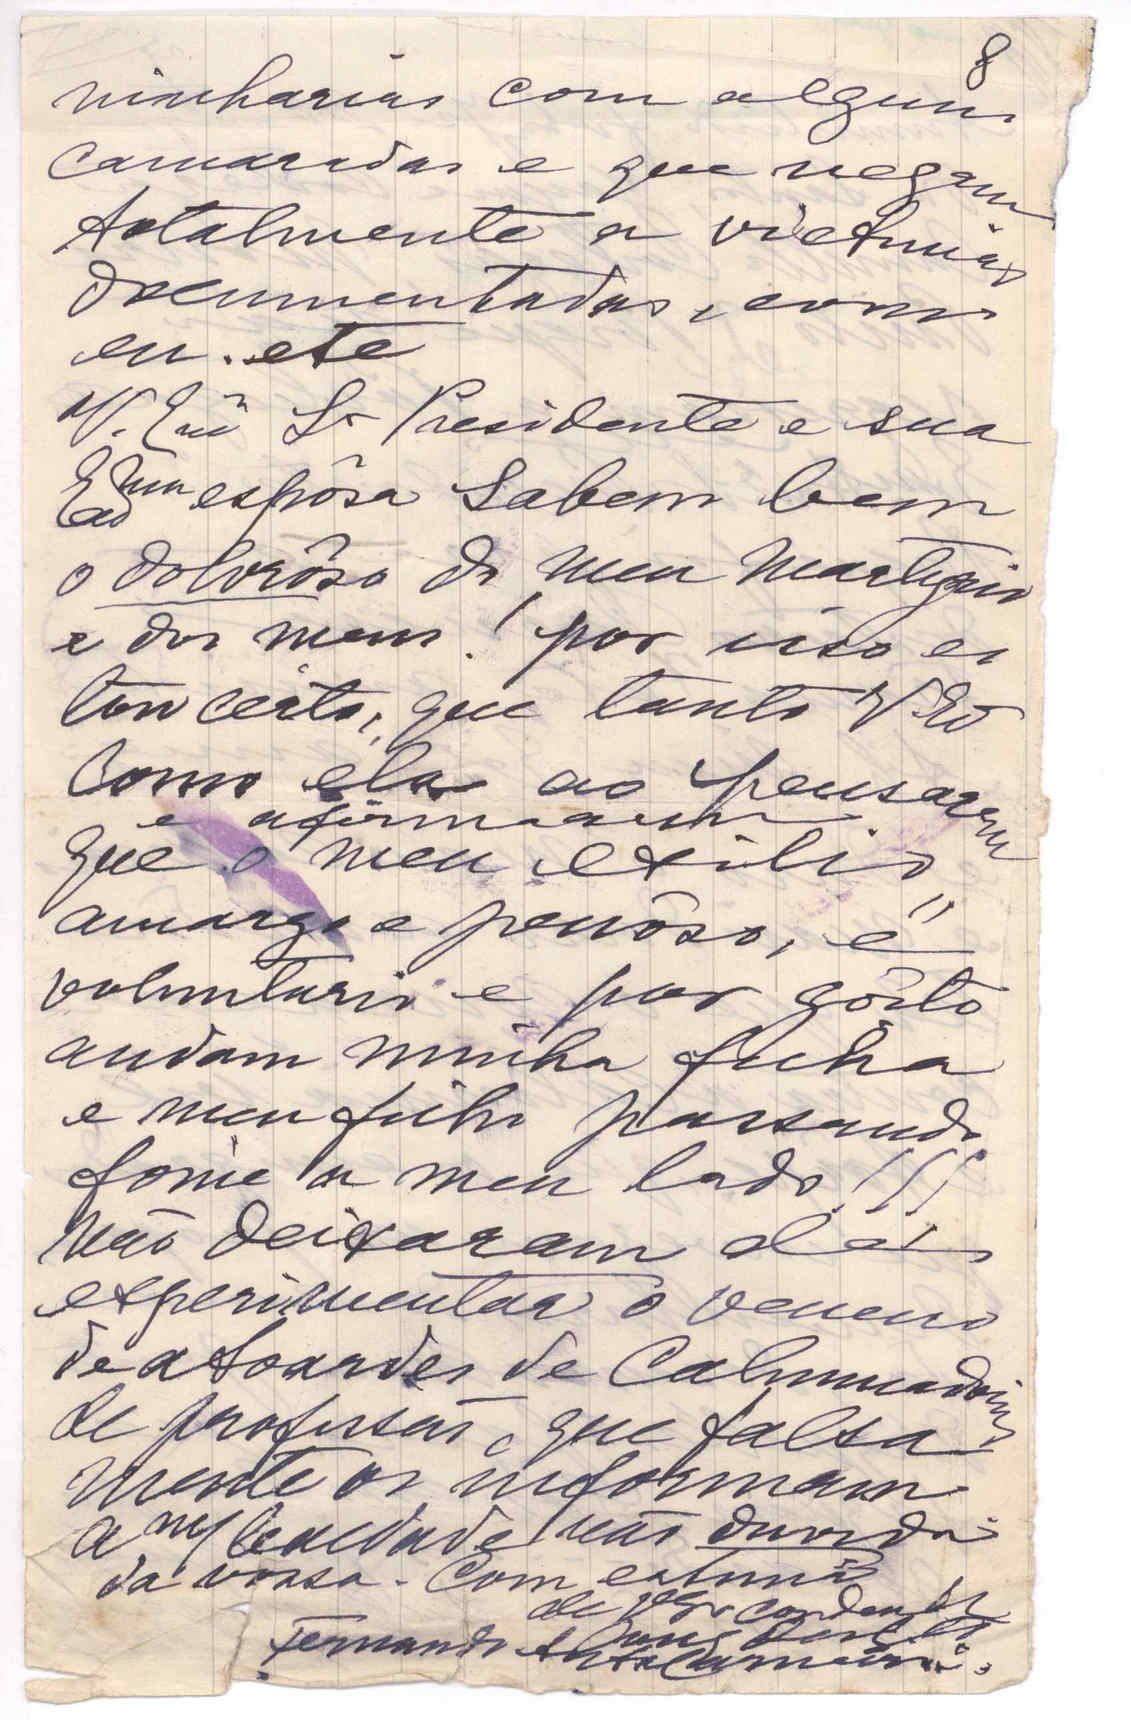 8
ninharias com alguns
camaradas e que negam
totalmente a victimas
documentadas, como
eu. etc
V. Exiã Sr Presidente e sua
Exma espôsa sabem bem
o dolorôso do meu martyrio
e dos meus! por isso es
tou certo, que tanto V Exã
como ela ao pensarem
e afirmarem
que o meu exilio,
amargo e penôso, é
voluntario e por gôsto
andam minha filha
e meu filho passando
fome a meu lado!!!
Não deixaram de
experimentar o veneno
de atoardes de Calumniadores
de profissão, que falsa
mente os informam
A mª lealdade não duvida
da vossa. Com estima
de
Fernando Carneiro